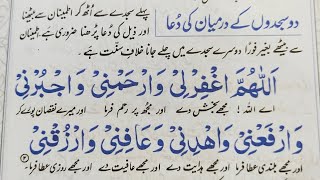 دو سجدوں کے درمیان کی دُعا
پہلے سجدے سے اُٹھ کر اطمینان سے بیٹھنا
اور ذیل کی دُعا پڑھنا ضروری ہے، اطمینان
سے بیٹھے بغیر فوراً دوسرے سجدے میں چلے جانا خلافِ سنّت ہے
اَللّٰهُمَّ اغْفِرْلِیْ وَارْحَمْنِیْ وَاجْبُرْنِیْ
اے اللہ! مجھے بخش دے اور مجھ پر رحم فرما اور میرے نقصان پورے کر
وَارْفَعْنِیْ وَاهْدِنِیْ وَعَافِنِیْ وَارْزُقْنِیْ
اور مجھے بلندی عطا فرما اور مجھے ہدایت دے اور مجھے عافیت دے اور مجھے روزی عطا فرما